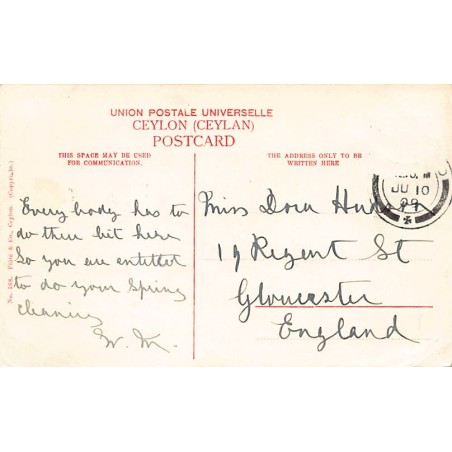 UNION POSTALE UNIVERSELLE
CEYLON (CEYLAN)
POSTCARD
THIS SPACE MAY BE USED
FOR COMMUNICATION.
THE ADDRESS ONLY TO BE
WRITTEN HERE
Every body has to
do their bit here
So you are entitled
to do your Spring
cleaning
W. M.
Miss Dora
19 Regent St
Gloucester
England
JU 10
No. 388. Plâté & Co., Ceylon (Copyright.)